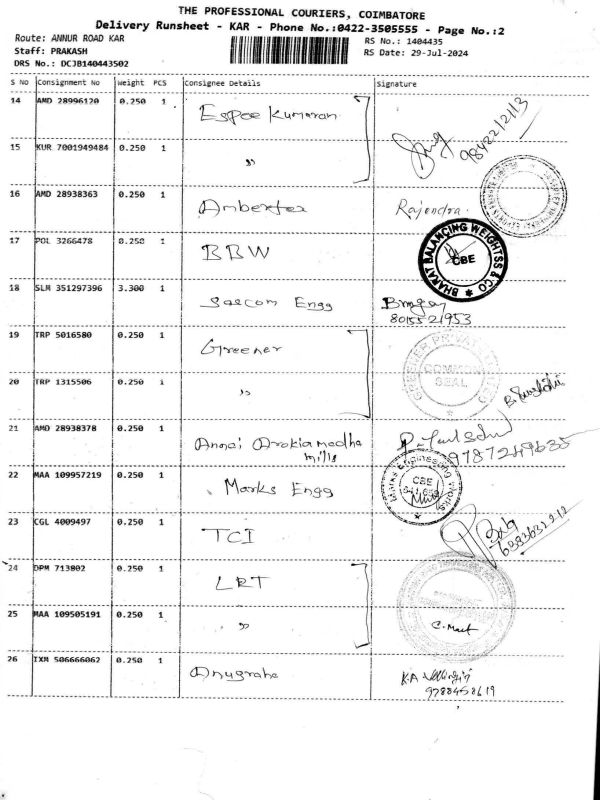 THE PROFESSIONAL COURIERS, COIMBATORE
Delivery Runsheet - KAR - Phone No.:0422-3505555 - Page No.:2
Route: ANNUR ROAD KAR
RS No.: 1404435
Staff: PRAKASH
RS Date: 29-Jul-2024
DRS No.: DCJB140443502
S No Consignment No Weight PCS Consignee Details Signature
14 AMD 28996120 0.250 1 Espee Kumaran
9842212113
15 KUR 7001949484 0.250 1 "
16 AMD 28938363 0.250 1 Ambertex Rajendra
17 POL 3266478 0.250 1 BBW
BHARAT BALANCING WEIGHTSS & CO
CBE
18 SLM 351297396 3.300 1 Saecom Engg
8015521953
19 TRP 5016580 0.250 1 Greener
GREENER PRIVATE LIMITED
COMMON SEAL
20 TRP 1315506 0.250 1 "
21 AMD 28938378 0.250 1 Annai Arokia madha mills
9787249635
22 MAA 109957219 0.250 1 Marks Engg
Marks Engineering Works
CBE
23 CGL 4009497 0.250 1 TCI
24 DPM 713802 0.250 1 LRT
25 MAA 109505191 0.250 1 "
26 IXM 506666062 0.250 1 Anugraha K.A
9788458619